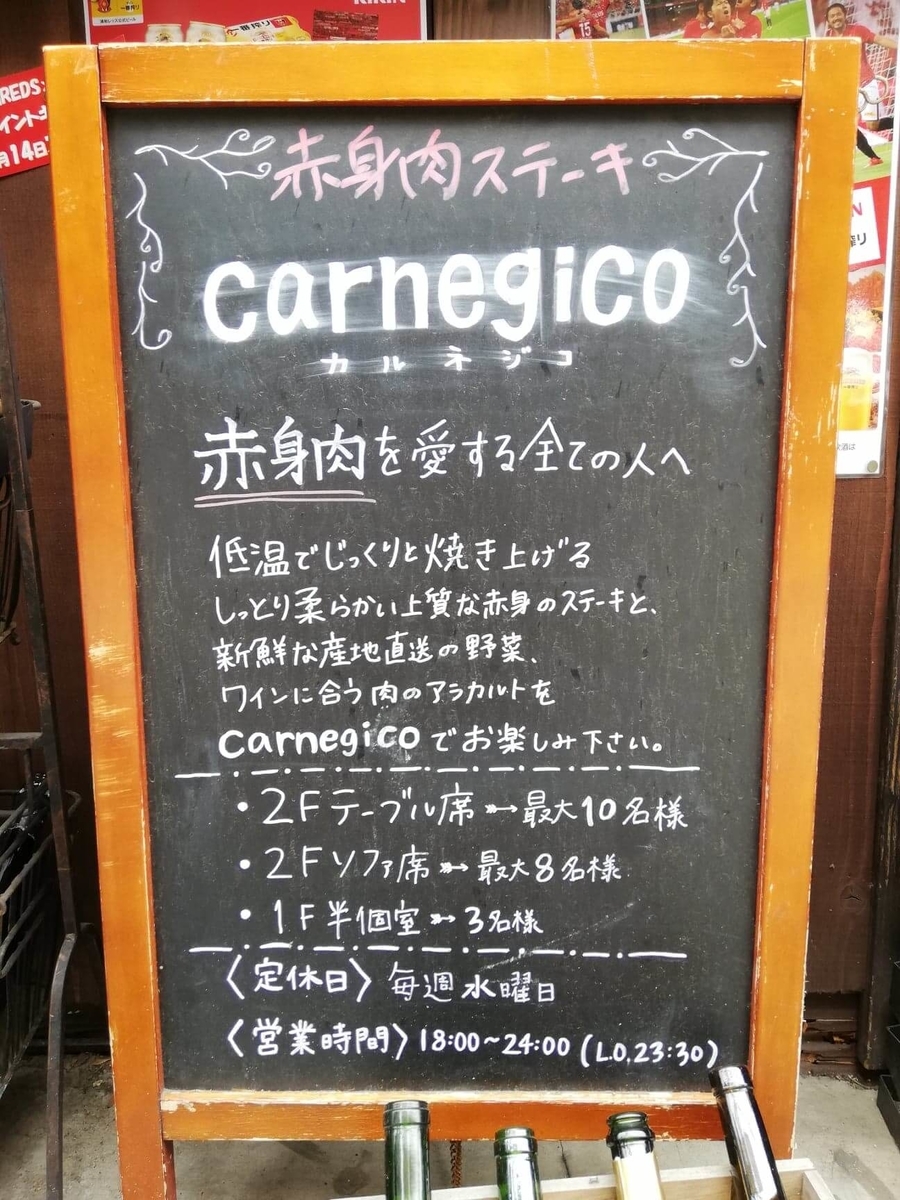 KIRIN
一番搾り
REDS
イント
月14日
15
赤身肉ステーキ
carnegico
カルネジコ
赤身肉を愛する全ての人へ
低温でじっくりと焼き上げる
しっとり柔らかい上質な赤身のステーキと、
新鮮な産地直送の野菜、
ワインに合う肉のアラカルトを
carnegicoでお楽しみ下さい。
・2Fテーブル席➳最大10名様
・2Fソファ席➳最大8名様
・1F半個室➳3名様
〈定休日〉毎週水曜日
〈営業時間〉18:00~24:00(L.O,23:30)